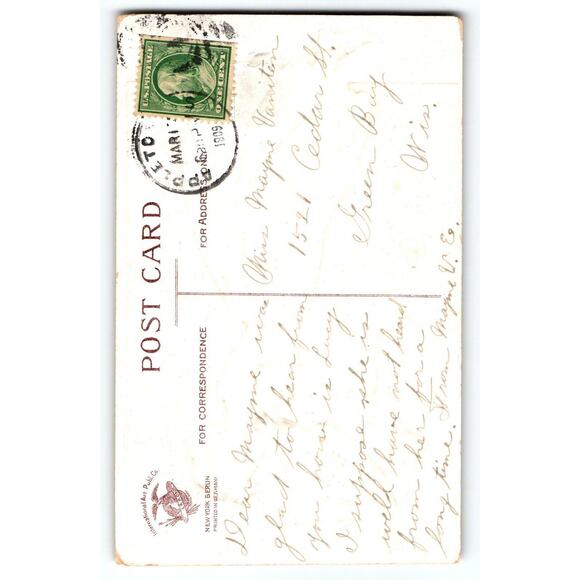 POST CARD
FOR CORRESPONDENCE
FOR ADDRESS ONLY
International Art Publ. Co.
NEW YORK BERLIN
PRINTED IN GERMANY
U.S. POSTAGE
ONE CENT
LETO
MAR 1
6 30 P
1909
D.
Miss Mayme Vaniten
1521 Cedar St.
Green Bay
Wis.
Dear Mayme was
glad to hear from
you how is Lucy
I suppose she is
well have not heard
from her for a
long time. From Mayme V. E.